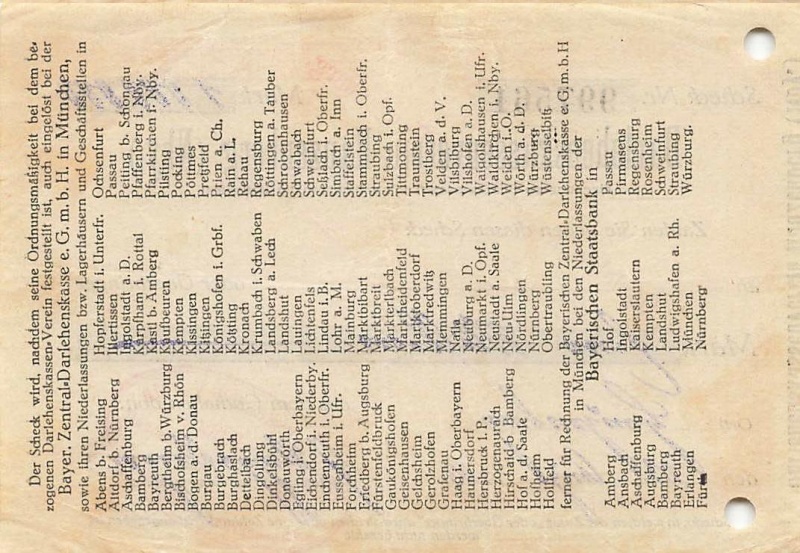 Der Scheck wird, nachdem seine Ordnungsmäßigkeit bei dem be-
zogenen Darlehenskassen-Verein festgestellt ist, auch eingelöst bei der
Bayer. Zentral-Darlehenskasse e. G. m. b. H. in München,
sowie ihren Niederlassungen bzw. Lagerhäusern und Geschäftsstellen in
Abens b. Freising
Altdorf b. Nürnberg
Aschaffenburg
Bamberg
Bayreuth
Bergtheim b. Würzburg
Bischofsheim v. Rhön
Bogen a. d. Donau
Burgau
Burgebrach
Burghaslach
Dettelbach
Dingolfing
Dinkelsbühl
Donauwörth
Egling i. Oberbayern
Eichendorf i. Niederby.
Enchenreuth i. Oberfr.
Eussenheim i. Ufr.
Forchheim
Friedberg b. Augsburg
Fürstenfeldbruck
Gaukönigshofen
Geisenhausen
Gelchsheim
Gerolzhofen
Grafenau
Haag i. Oberbayern
Haunersdorf
Hersbruck i. P.
Herzogenaurach
Hirschaid b. Bamberg
Hof a. d. Saale
Hofheim
Hollfeld
Hopferstadt i. Unterfr.
Illertissen
Ingolstadt a. D.
Karpfham i. Rottal
Kastl b. Amberg
Kaufbeuren
Kempten
Kissingen
Kitzingen
Königshofen i. Grbf.
Kötzting
Kronach
Krumbach i. Schwaben
Landsberg a. Lech
Landshut
Lauingen
Lichtenfels
Lindau i. B.
Lohr a. M.
Mainburg
Marktbibart
Marktbreit
Markterlbach
Marktheidenfeld
Marktoberdorf
Marktredwitz
Memmingen
Naila
Neuburg a. D.
Neumarkt i. Opf.
Neustadt a. Saale
Neu-Ulm
Nördlingen
Nürnberg
Obertraubling
Ochsenfurt
Passau
Peiting b. Schongau
Pfaffenberg i. Nby.
Pfarrkirchen i. Nby.
Pilsting
Pocking
Pöttmes
Pretzfeld
Prien a. Ch.
Rain a. L.
Rehau
Regensburg
Röttingen a. Tauber
Schrobenhausen
Schwabach
Schweinfurt
Seßlach i. Oberfr.
Simbach a. Inn
Staffelstein
Stammbach i. Oberfr.
Straubing
Sulzbach i. Opf.
Tittmoning
Traunstein
Trostberg
Velden a. d. V.
Vilsbiburg
Vilshofen a. D.
Waigolshausen i. Ufr.
Waldkirchen i. Nby.
Weiden i. O.
Wörth a. d. D.
Würzburg
Wüstenselbitz
ferner für Rechnung der Bayerischen Zentral-Darlehenskasse e. G. m. b. H
in München bei den Niederlassungen der
Bayerischen Staatsbank in
Amberg
Ansbach
Aschaffenburg
Augsburg
Bamberg
Bayreuth
Erlangen
Fürth
Hof
Ingolstadt
Kaiserslautern
Kempten
Landshut
Ludwigshafen a. Rh.
München
Nürnberg
Passau
Pirmasens
Regensburg
Rosenheim
Schweinfurt
Straubing
Würzburg.